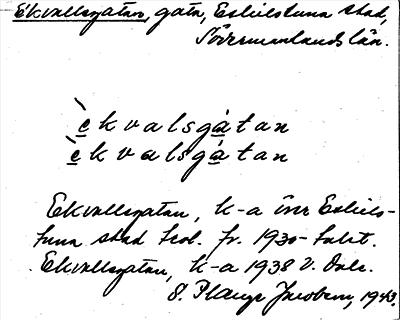 Ekvallsgatan, gata, Eskilstuna stad,
Södermanlands län.
èkvalsgátan
èkvalsgátan
Ekvallsgatan, k-a över Eskils-
tuna stad trol. fr. 1930-talet.
Ekvallsgatan, k-a 1938 V. Dale.
S. Plauge Jacobson, 1943.